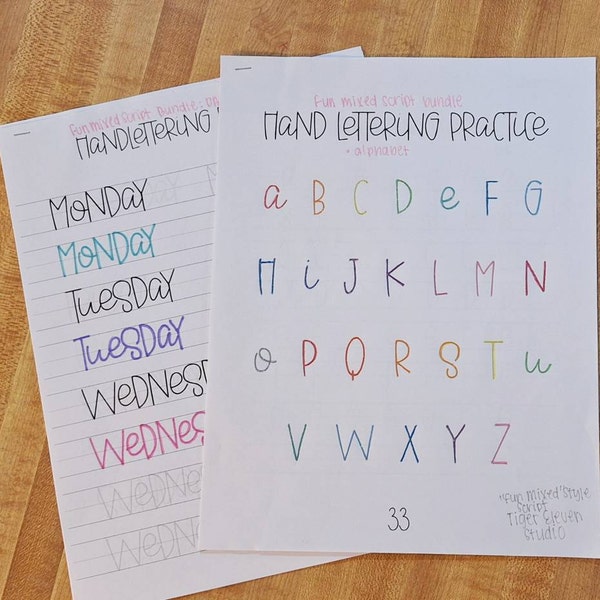 fun mixed script bundle: da
HaNDLETTERING
MONDAY
MONDAY
TUESDAY
TUESDAY
WeDNESD
WeDNES
WeDNES
WeDNES
fun mixed script bundle
HaND LETTERING PRaCTiCe
• alphabet
a B C D e F G
H i J K L M N
o P Q R S T u
V W X Y Z
33
"fun mixed" style
script
Tiger Eleven
Studio